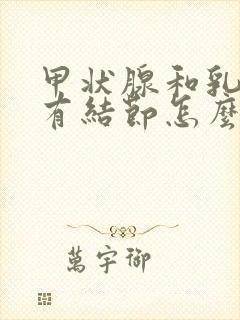 甲状腺和乳
有結節怎麼
萬宇御